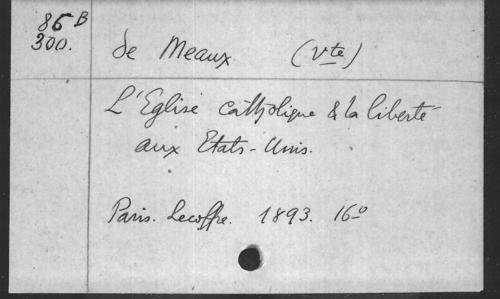 86 B
300.
de Meaux. (Vte)
L'Eglise catholique & la liberté
aux Etats-Unis.
Paris. Lecoffre. 1893. 16o